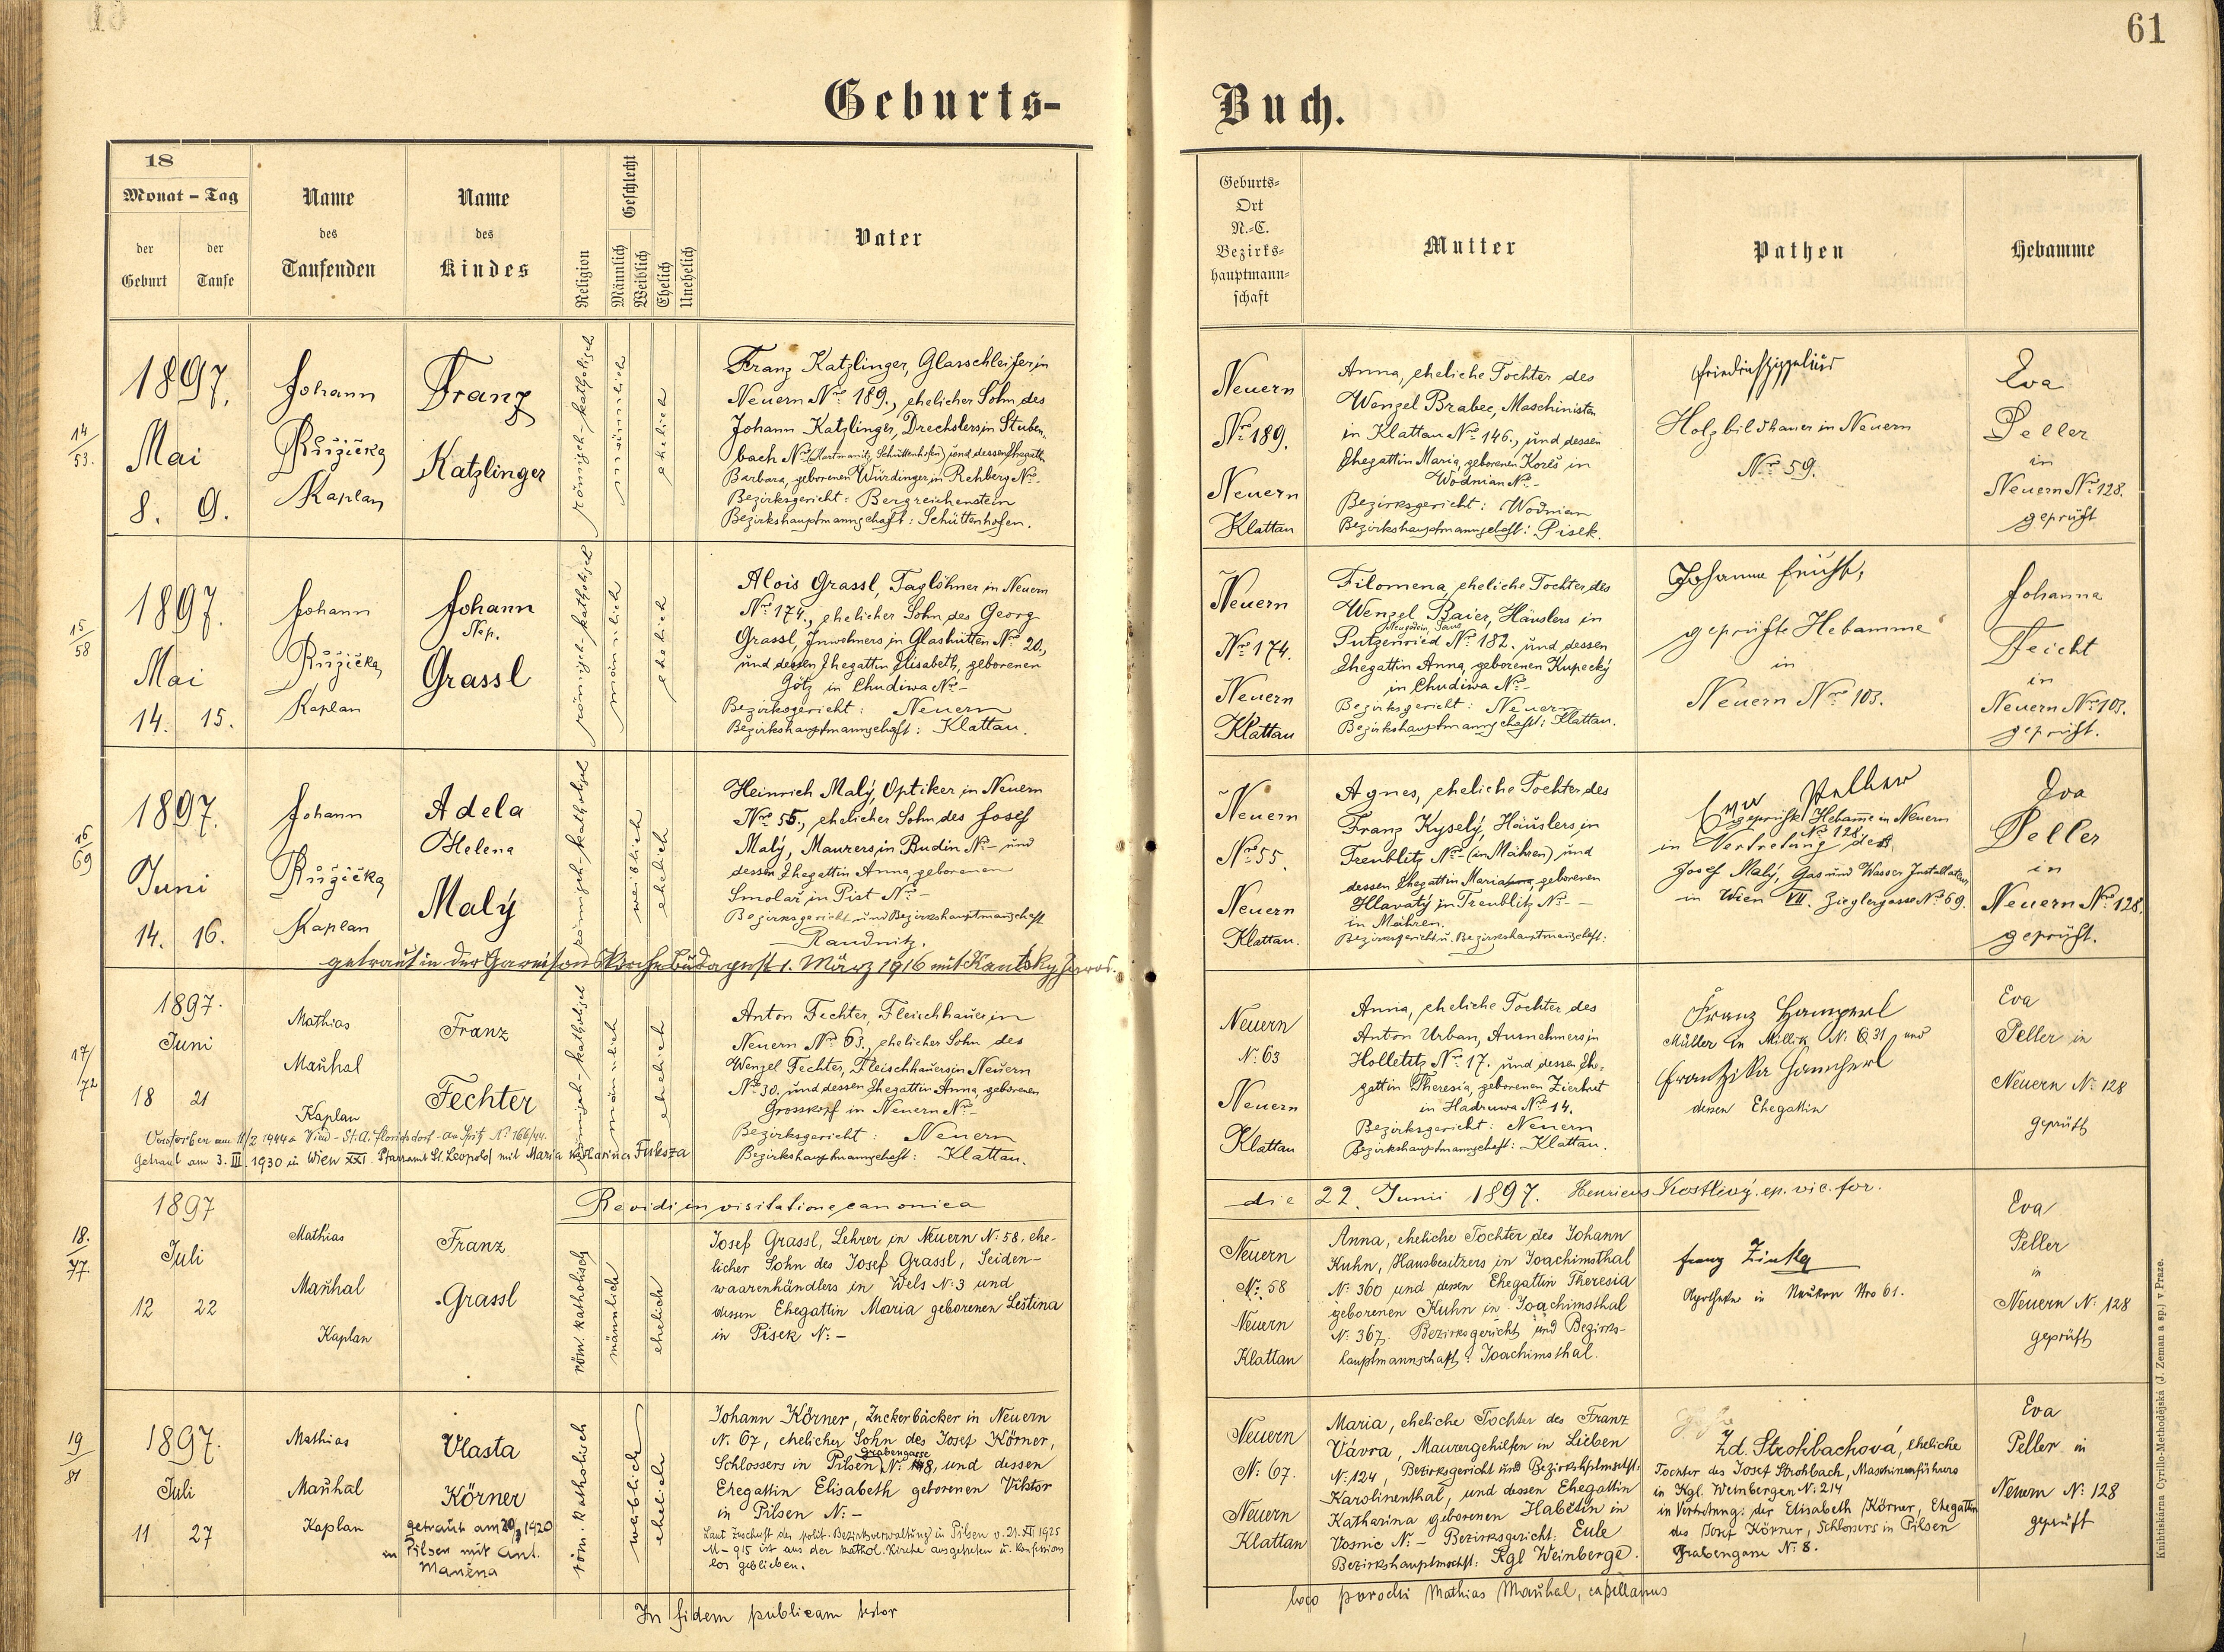 61
Geburts-
Buch.
18
Monat – Tag
der Geburt
der Taufe
Name
des
Taufenden
Name
des
Kindes
Religion
Geschlecht
Männlich
Weiblich
Ehelich
Unehelich
Vater
Geburts-
Ort
N.-C.
Bezirks-
hauptmann-
schaft
Mutter
Pathen
Hebamme
14/53.
1897.
Mai
8. 9.
Johann
Růžička
Kaplan
Franz
Katzlinger
römisch-katholisch
männlich
ehelich
Franz Katzlinger, Glasschleifer in
Neuern Nro 189., ehelicher Sohn des
Johann Katzlinger, Drechslers in Stuben-
bach Nro (Hartmanitz, Schüttenhofen) und dessen Ehegattin
Barbara, geborenen Würdinger in Rehberg Nro -
Bezirksgericht: Bergreichenstein
Bezirkshauptmannschaft: Schüttenhofen.
Neuern
Nro 189.
Neuern
Klattau
Anna, eheliche Tochter des
Wenzel Brabec, Maschinisten
in Klattau Nro 146., und dessen
Ehegattin Maria, geborenen Koreš in
Wodnian Nro -
Bezirksgericht: Wodnian
Bezirkshauptmannschaft: Pisek.
Friedrich
Holzbildhauer in Neuern
Nro 59.
Eva
Peller
in
Neuern Nro 128.
geprüft
15/58
1897.
Mai
14. 15.
Johann
Růžička
Kaplan
Johann
Nep.
Grassl
römisch-katholisch
männlich
ehelich
Alois Grassl, Taglöhner in Neuern
Nro 174., ehelicher Sohn des Georg
Grassl, Inwohners in Glashütten Nro 20,
und dessen Ehegattin Elisabeth, geborenen
Götz in Chudiwa Nro -
Bezirksgericht: Neuern
Bezirkshauptmannschaft: Klattau.
Neuern
Nro 174.
Neuern
Klattau
Filomena, eheliche Tochter des
Wenzel Baier, Häuslers in
Neugedein, Taus
Putzenried Nro 182. und dessen
Ehegattin Anna, geborenen Kupecký
in Chudiwa Nro -
Bezirksgericht: Neuern
Bezirkshauptmannschaft: Klattau.
Johanna Feicht,
geprüfte Hebamme
in
Neuern Nro 103.
Johanna
Feicht
in
Neuern Nro 103.
geprüft.
16/69
1897.
Juni
14. 16.
Johann
Růžička
Kaplan
Adela
Helena
Malý
römisch-katholisch
weiblich
ehelich
Heinrich Malý, Optiker in Neuern
Nro 55., ehelicher Sohn des Josef
Malý, Maurers in Budin Nro - und
dessen Ehegattin Anna, geborenen
Smolař in Pist Nro -
Bezirksgericht und Bezirkshauptmanschaft
Raudnitz.
getraut in der Garnisonskirche Budapest 1. März 1916 mit Kautsky Jarosl.
Neuern
Nro 55.
Neuern
Klattau.
Agnes, eheliche Tochter des
Franz Kyselý, Häuslers in
Treublitz Nro - (in Mähren) und
dessen Ehegattin Maria, geborenen
Hlavatý in Treublitz Nro -
in Mähren.
Bezirksgericht u. Bezirkshauptmanschaft:
Eva Peller
geprüfte Hebamme in Neuern
Nro 128,
in Vertretung des
Josef Malý, Gas und Wasser Installateur
in Wien VII. Zieglergasse Nro 69.
Eva
Peller
in
Neuern Nro 128.
geprüft.
17/72
1897.
Juni
18 21
Mathias
Mauhal
Kaplan
Franz
Fechter
römisch-katholisch
männlich
ehelich
Verstorben am 11/2 1944 Wien - St. A. Floridsdorf - Am Spitz No 166/44.
Getraut am 3. III. 1930 in Wien XXI. Pfarramt St. Leopold mit Maria Katharina Fuksza
Anton Fechter, Fleischhauer in
Neuern Nro 63., ehelicher Sohn des
Wenzel Fechter, Fleischhauers in Neuern
Nro 30. und dessen Ehegattin Anna, geborenen
Grosskopf in Neuern Nro -
Bezirksgericht: Neuern
Bezirkshauptmannschaft: Klattau.
Neuern
N: 63
Neuern
Klattau
Anna, eheliche Tochter des
Anton Urban, Ausnehmers in
Holletitz Nro 17. und dessen Ehe-
gattin Theresia, geborenen Zierhut
in Hadruwa Nro 14.
Bezirksgericht: Neuern
Bezirkshauptmannschaft: Klattau.
Franz Hamperl
Müller in Millik N: 31 und
Franziska Hamperl
dessen Ehegattin
Eva
Peller in
Neuern N: 128
geprüft
Revidi in visitatione canonica
die 22. Junii 1897. Henricus Kostlivý ep. vic. for.
18./77.
1897
Juli
12 22
Mathias
Mauhal
Kaplan
Franz
Grassl
röm. katholisch
männlich
ehelich
Josef Grassl, Lehrer in Neuern N: 58, ehe-
licher Sohn des Josef Grassl, Seiden-
waarenhändlers in Wels N: 3 und
dessen Ehegattin Maria geborenen Leština
in Pisek N: -
Neuern
N: 58
Neuern
Klattau
Anna, eheliche Tochter des Johann
Kuhn, Hausbesitzers in Joachimsthal
N: 360 und dessen Ehegattin Theresia
geborenen Kuhn in Joachimsthal
N: 367. Bezirksgericht und Bezirks-
hauptmannschaft: Joachimsthal.
Franz Zinka
Apotheker in Neuern Nro 61.
Eva
Peller
in
Neuern N: 128
geprüft
19/81
1897.
Juli
11 27
Mathias
Mauhal
Kaplan
Vlasta
Körner
getraut am 20/3 1920
in Pilsen mit Ant.
Maněna
röm. katholisch
weiblich
ehelich
Johann Körner, Zuckerbäcker in Neuern
N. 67, ehelicher Sohn des Josef Körner,
Grabengasse
Schlossers in Pilsen N: 8, und dessen
Ehegattin Elisabeth geborenen Viktor
in Pilsen N: -
Laut Zuschrift der polit. Bezirksverwaltung in Pilsen v. 21. XII 1925
M - 915 ist aus der kathol. Kirche ausgetreten u. konfessions
los geblieben.
Neuern
N: 67.
Neuern
Klattau
Maria, eheliche Tochter des Franz
Vávra, Maurergehilfen in Lieben
N: 124, Bezirksgericht und Bezirkshptmschft:
Karolinenthal, und dessen Ehegattin
Katharina geborenen Habětin in
Vosnic N: - Bezirksgericht: Eule
Bezirkshauptmschft: Kgl Weinberge.
Zd. Strohbachová, eheliche
Tochter des Josef Strohbach, Maschinenführers
in Kgl. Weinbergen N: 214
in Vertretung: der Elisabeth Körner, Ehegattin
des Josef Körner, Schlossers in Pilsen
Grabengasse N: 8.
Eva
Peller in
Neuern N: 128
geprüft
In fidem publicam testor
loco parochi Mathias Mauhal, capellanus
Knihtiskárna Cyrillo-Methodějská (J. Zeman a sp.) v Praze.